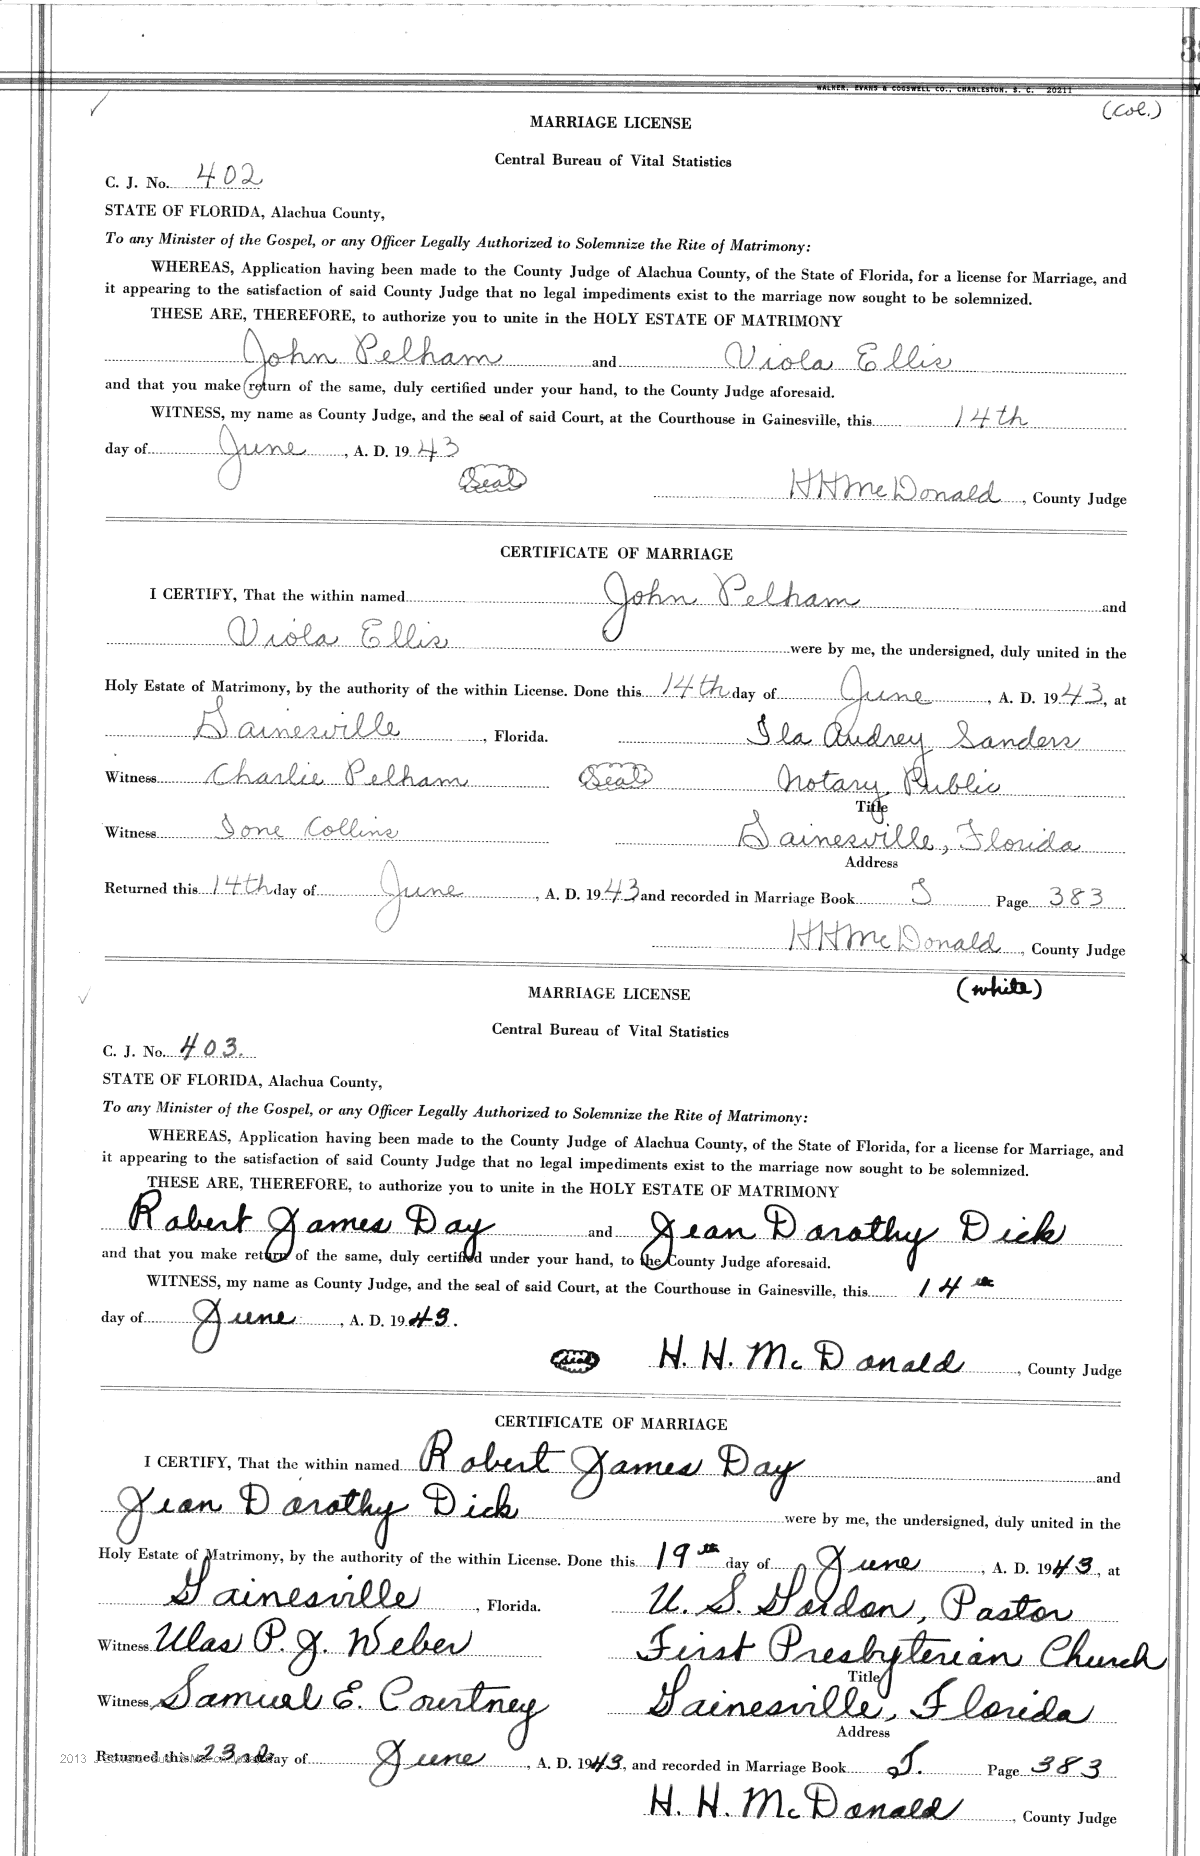 WALKER, EVANS & COGSWELL CO., CHARLESTON, S. C. 20211
(Col.)
MARRIAGE LICENSE
Central Bureau of Vital Statistics
C. J. No. 402
STATE OF FLORIDA, Alachua County,
To any Minister of the Gospel, or any Officer Legally Authorized to Solemnize the Rite of Matrimony:
WHEREAS, Application having been made to the County Judge of Alachua County, of the State of Florida, for a license for Marriage, and
it appearing to the satisfaction of said County Judge that no legal impediments exist to the marriage now sought to be solemnized.
THESE ARE, THEREFORE, to authorize you to unite in the HOLY ESTATE OF MATRIMONY
John Pelham and Viola Ellis
and that you make return of the same, duly certified under your hand, to the County Judge aforesaid.
WITNESS, my name as County Judge, and the seal of said Court, at the Courthouse in Gainesville, this 14th
day of June, A. D. 1943
(Seal)
HHMcDonald, County Judge
CERTIFICATE OF MARRIAGE
I CERTIFY, That the within named John Pelham and
Viola Ellis were by me, the undersigned, duly united in the
Holy Estate of Matrimony, by the authority of the within License. Done this 14th day of June, A. D. 1943, at
Gainesville, Florida. Ila Audrey Sanders
Witness Charlie Pelham (Seal) Notary Public
Title
Witness Ione Collins Gainesville, Florida
Address
Returned this 14th day of June, A. D. 1943 and recorded in Marriage Book I Page 383
HHMcDonald, County Judge
(white)
MARRIAGE LICENSE
Central Bureau of Vital Statistics
C. J. No. 403.
STATE OF FLORIDA, Alachua County,
To any Minister of the Gospel, or any Officer Legally Authorized to Solemnize the Rite of Matrimony:
WHEREAS, Application having been made to the County Judge of Alachua County, of the State of Florida, for a license for Marriage, and
it appearing to the satisfaction of said County Judge that no legal impediments exist to the marriage now sought to be solemnized.
THESE ARE, THEREFORE, to authorize you to unite in the HOLY ESTATE OF MATRIMONY
Robert James Day and Jean Dorothy Dick
and that you make return of the same, duly certified under your hand, to the County Judge aforesaid.
WITNESS, my name as County Judge, and the seal of said Court, at the Courthouse in Gainesville, this 14th
day of June, A. D. 1943.
(seal)
H. H. McDonald, County Judge
CERTIFICATE OF MARRIAGE
I CERTIFY, That the within named Robert James Day and
Jean Dorothy Dick were by me, the undersigned, duly united in the
Holy Estate of Matrimony, by the authority of the within License. Done this 19th day of June, A. D. 1943, at
Gainesville, Florida. U. S. Gordon, Pastor
Witness Ulas P. J. Weber First Presbyterian Church
Title
Witness Samuel E. Courtney Gainesville, Florida
Address
Returned this 23rd day of June, A. D. 1943, and recorded in Marriage Book I. Page 383
H. H. McDonald, County Judge
2013